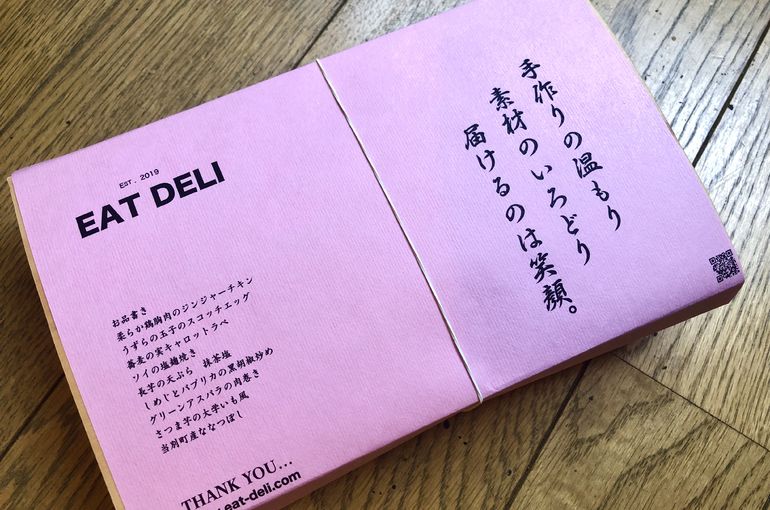 EST. 2019
EAT DELI
お品書き
柔らか鶏胸肉のジンジャーチキン
うずらの玉子のスコッチエッグ
蕎麦の実キャロットラペ
ソイの塩麹焼き
長芋の天ぷら 抹茶塩
しめじとパプリカの黒胡椒炒め
グリーンアスパラの肉巻き
さつま芋の大学いも風
当別町産ななつぼし
THANK YOU...
.eat-deli.com
手作りの温もり
素材のいろどり
届けるのは笑顔。